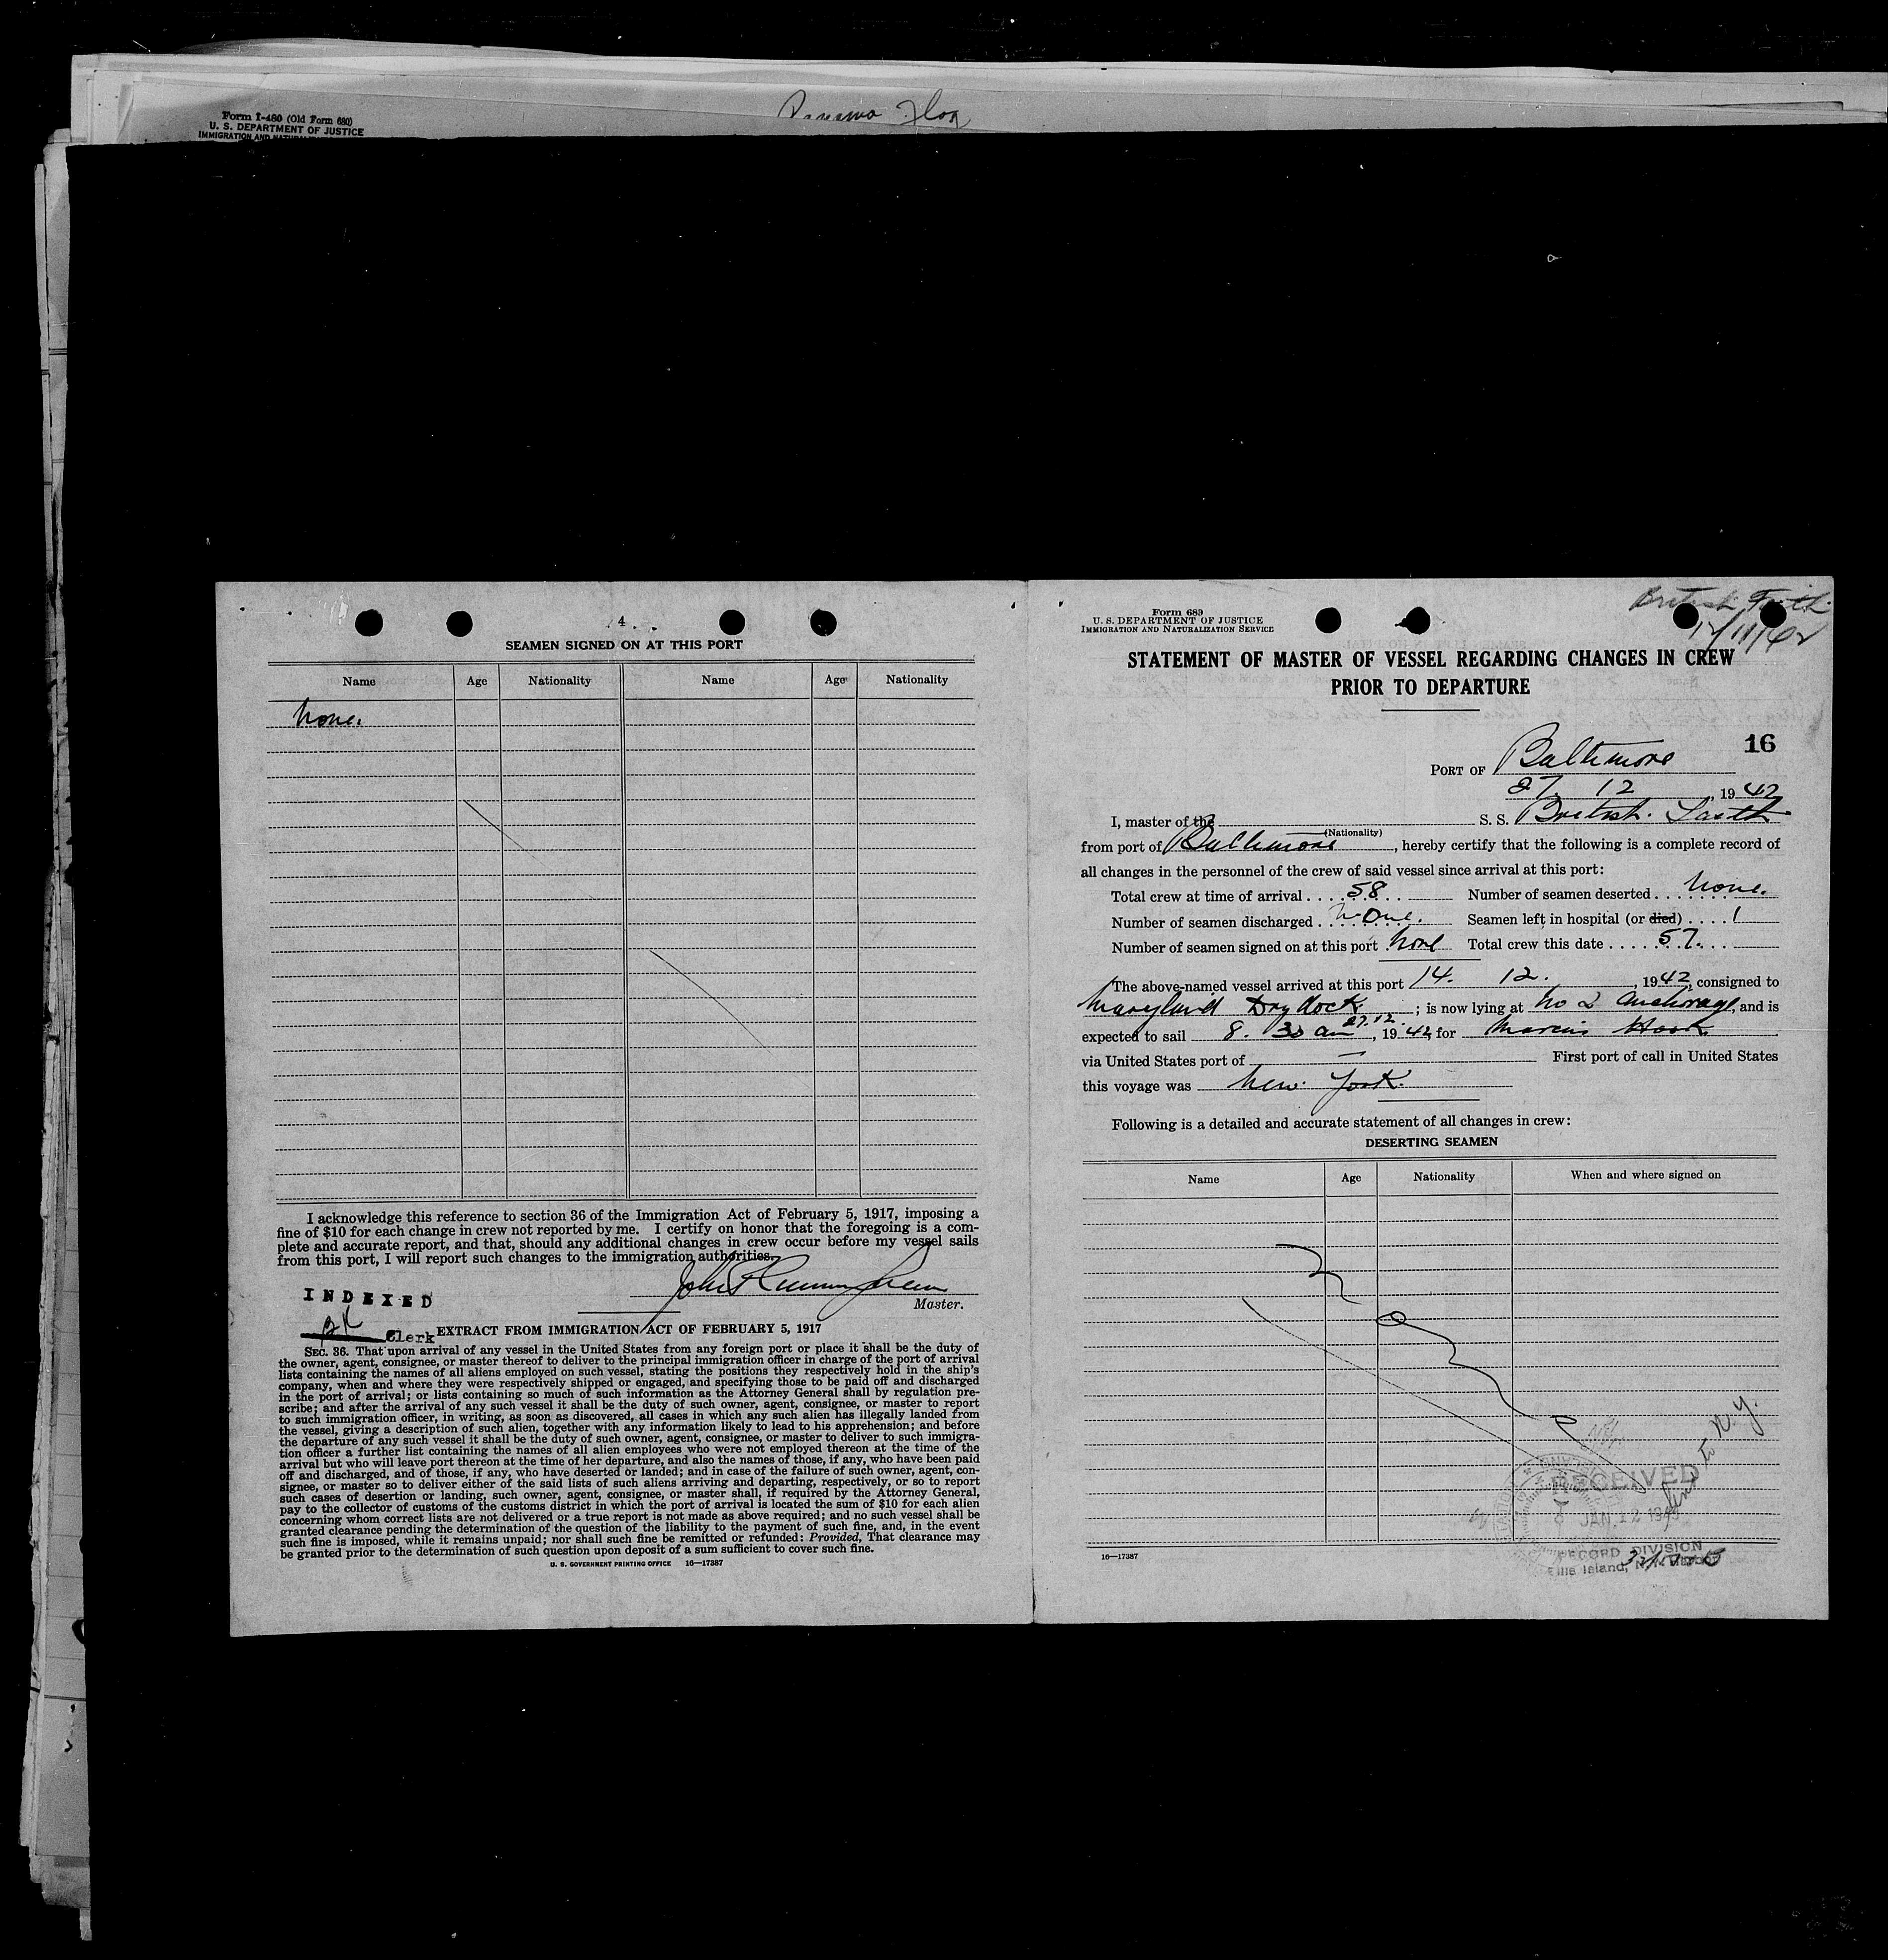 Form I-480 (Old Form 680)
U. S. DEPARTMENT OF JUSTICE
IMMIGRATION AND NATURALIZATION
Panama Flag
4
SEAMEN SIGNED ON AT THIS PORT
Name Age Nationality Name Age Nationality
None.
I acknowledge this reference to section 36 of the Immigration Act of February 5, 1917, imposing a
fine of $10 for each change in crew not reported by me. I certify on honor that the foregoing is a com-
plete and accurate report, and that, should any additional changes in crew occur before my vessel sails
from this port, I will report such changes to the immigration authorities.
John Cunningham
Master.
INDEXED
Clerk
EXTRACT FROM IMMIGRATION ACT OF FEBRUARY 5, 1917
SEC. 36. That upon arrival of any vessel in the United States from any foreign port or place it shall be the duty of
the owner, agent, consignee, or master thereof to deliver to the principal immigration officer in charge of the port of arrival
lists containing the names of all aliens employed on such vessel, stating the positions they respectively hold in the ship's
company, when and where they were respectively shipped or engaged, and specifying those to be paid off and discharged
in the port of arrival; or lists containing so much of such information as the Attorney General shall by regulation pre-
scribe; and after the arrival of any such vessel it shall be the duty of such owner, agent, consignee, or master to report
to such immigration officer, in writing, as soon as discovered, all cases in which any such alien has illegally landed from
the vessel, giving a description of such alien, together with any information likely to lead to his apprehension; and before
the departure of any such vessel it shall be the duty of such owner, agent, consignee, or master to deliver to such immigra-
tion officer a further list containing the names of all alien employees who were not employed thereon at the time of the
arrival but who will leave port thereon at the time of her departure, and also the names of those, if any, who have been paid
off and discharged, and of those, if any, who have deserted or landed; and in case of the failure of such owner, agent, con-
signee, or master so to deliver either of the said lists of such aliens arriving and departing, respectively, or so to report
such cases of desertion or landing, such owner, agent, consignee, or master shall, if required by the Attorney General,
pay to the collector of customs of the customs district in which the port of arrival is located the sum of $10 for each alien
concerning whom correct lists are not delivered or a true report is not made as above required; and no such vessel shall be
granted clearance pending the determination of the question of the liability to the payment of such fine, and, in the event
such fine is imposed, while it remains unpaid; nor shall such fine be remitted or refunded: Provided, That clearance may
be granted prior to the determination of such question upon deposit of a sum sufficient to cover such fine.
U. S. GOVERNMENT PRINTING OFFICE 16—17387
Form 689
U. S. DEPARTMENT OF JUSTICE
IMMIGRATION AND NATURALIZATION SERVICE
British Faith
12/11/42
STATEMENT OF MASTER OF VESSEL REGARDING CHANGES IN CREW
PRIOR TO DEPARTURE
16
PORT OF Baltimore
27. 12, 1942
I, master of the S. S. British Faith
(Nationality)
from port of Baltimore, hereby certify that the following is a complete record of
all changes in the personnel of the crew of said vessel since arrival at this port:
Total crew at time of arrival 58 Number of seamen deserted None.
Number of seamen discharged None. Seamen left in hospital (or died) 1
Number of seamen signed on at this port None Total crew this date 57.
The above-named vessel arrived at this port 14. 12., 1942, consigned to
Maryland Drydock; is now lying at No 2 Anchorage, and is
expected to sail 8. 30 am 27.12., 1942, for Marcus Hook
via United States port of — First port of call in United States
this voyage was New York.
Following is a detailed and accurate statement of all changes in crew:
DESERTING SEAMEN
Name Age Nationality When and where signed on
Sent to N.Y.
RECEIVED
JAN 12 194
RECORD DIVISION
Ellis Island, N.Y. Harbor
16—17387